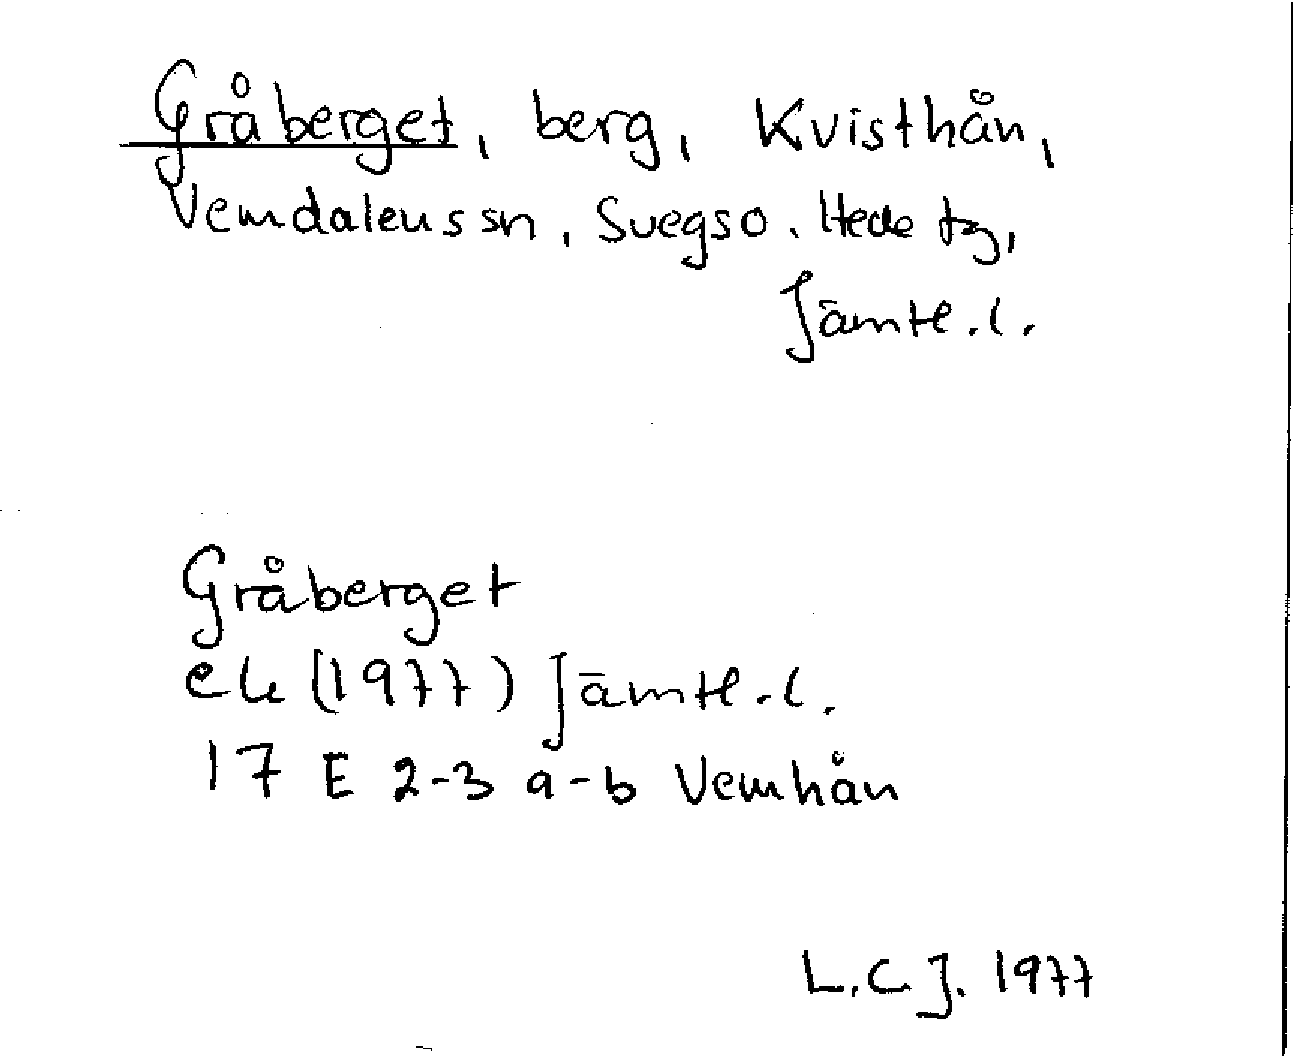 Gråberget, berg, Kvisthån,
Vemdalens sn, Svegs o. Hede tg,
Jämtl. l.
Gråberget
ek (1977) Jämtl. l.
17 E 2-3 a-b Vemhån
L.C.J. 1977